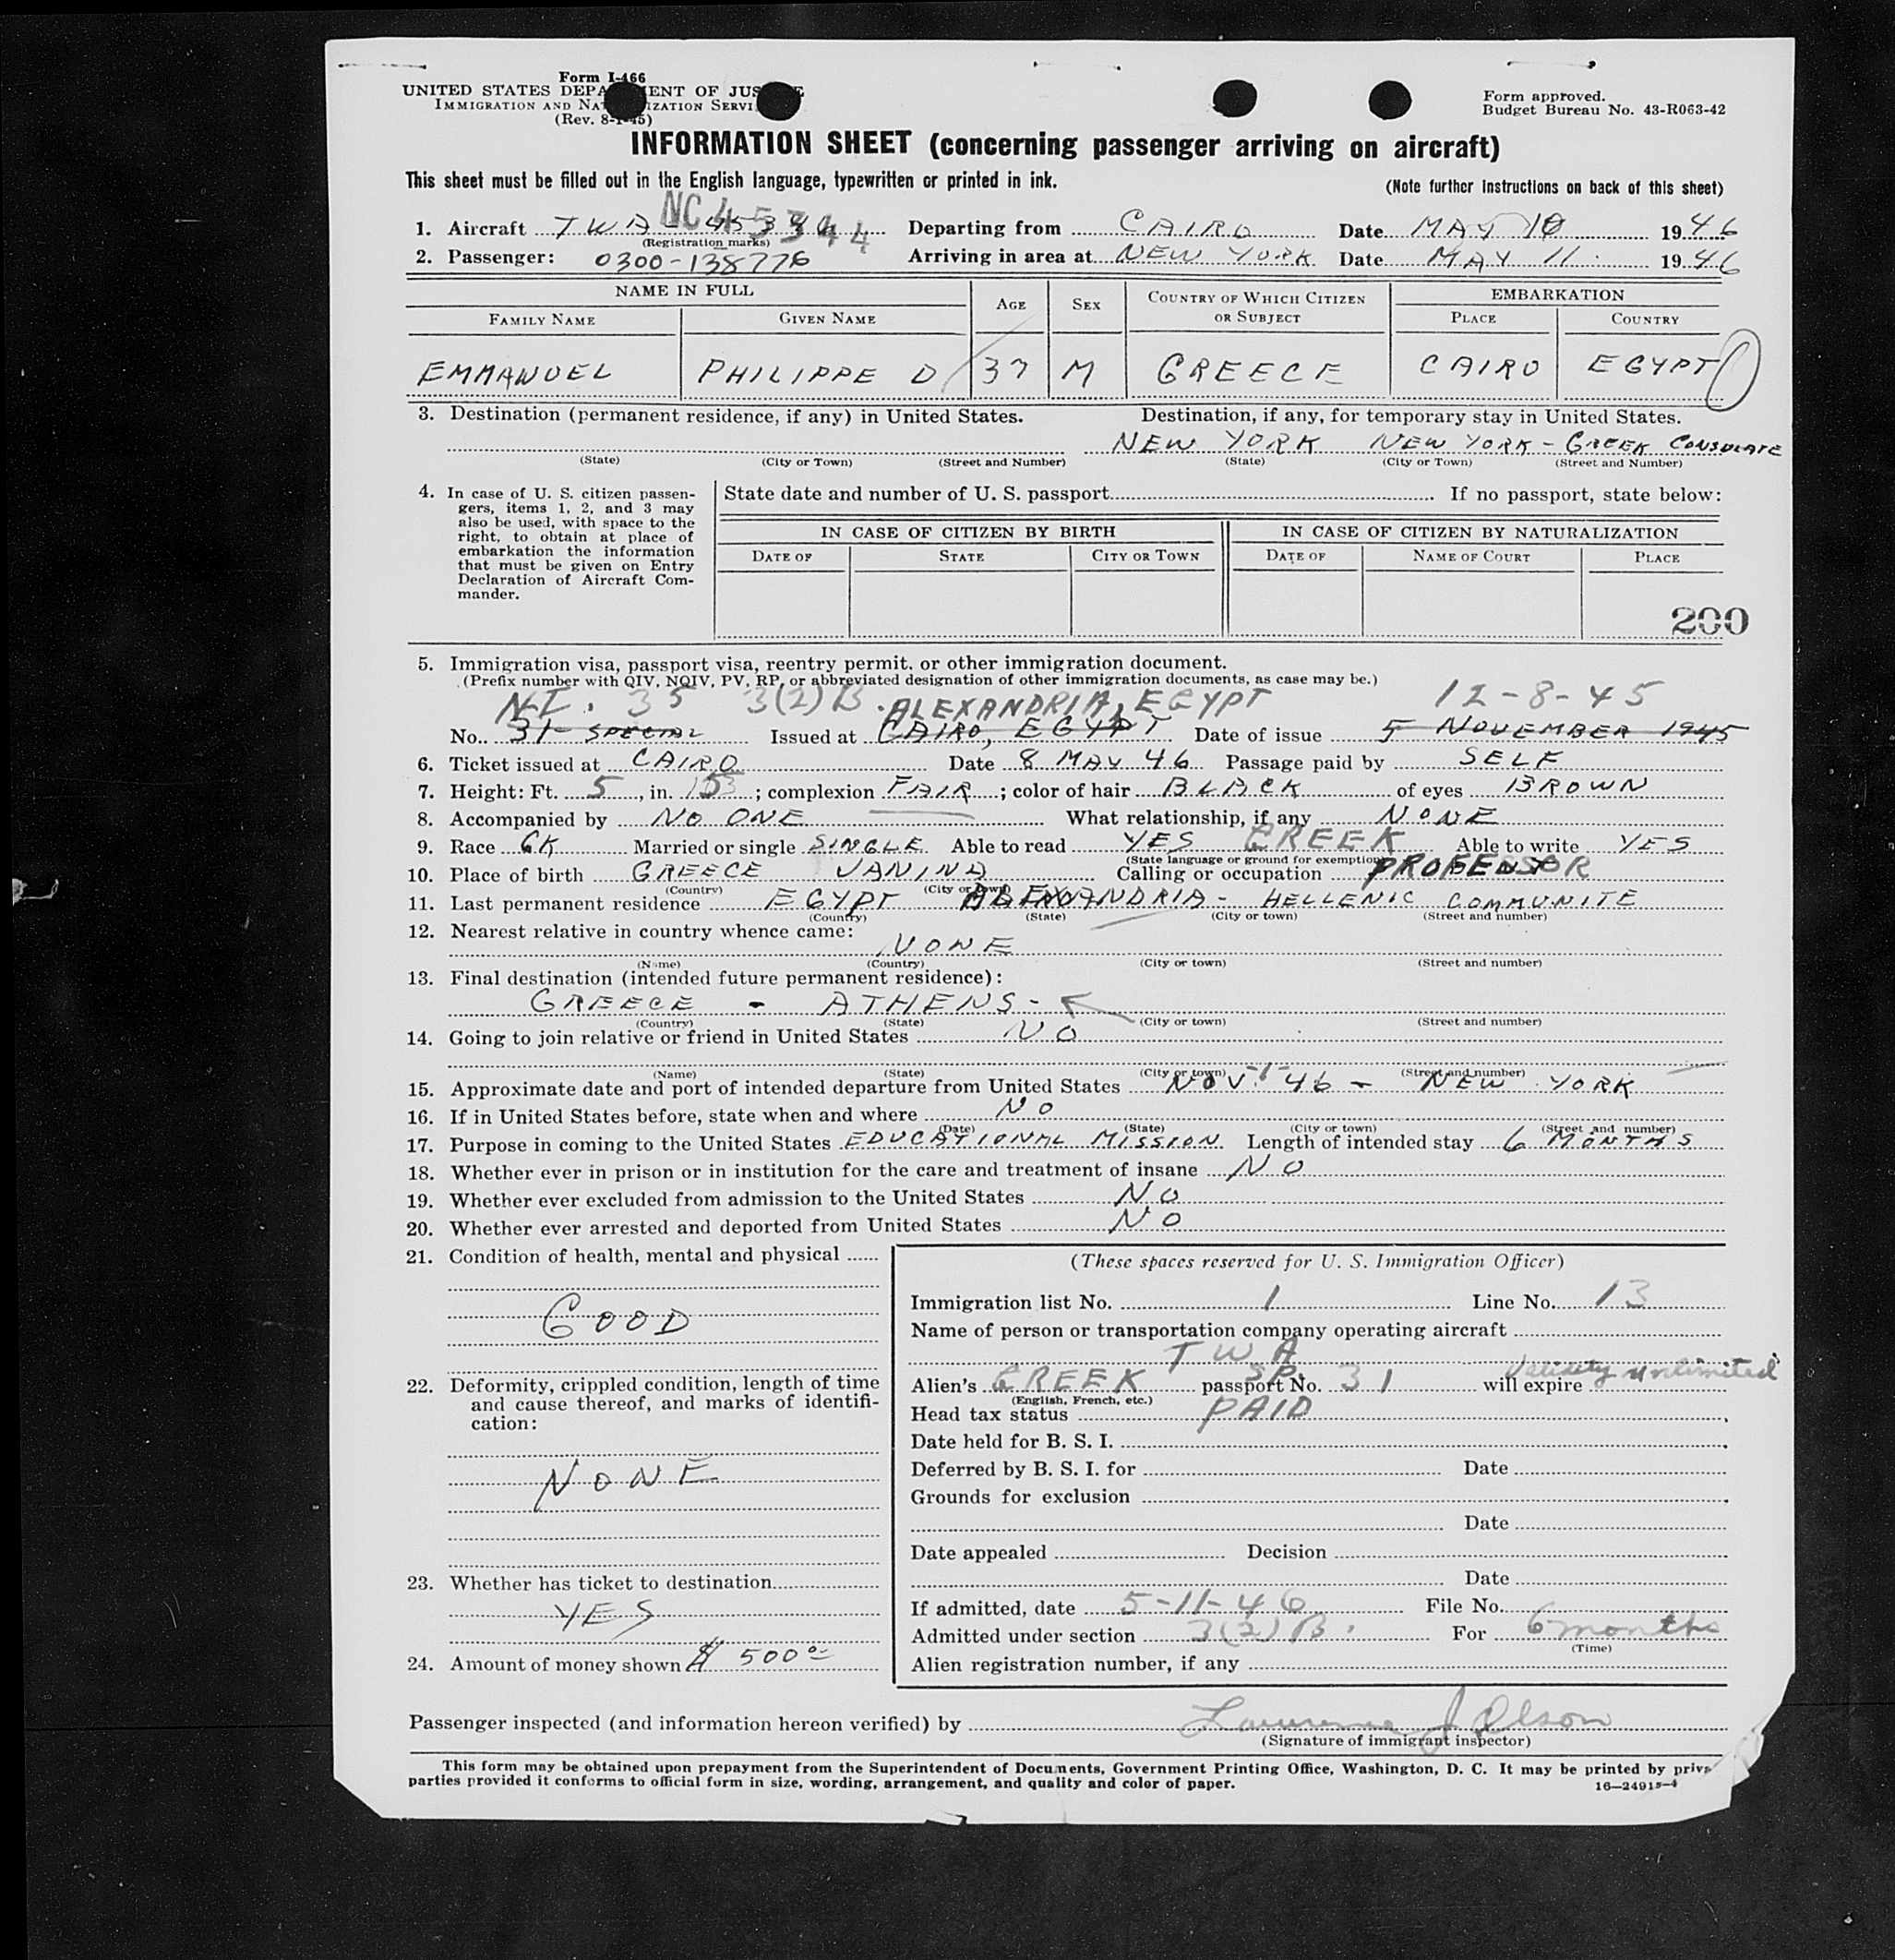 Form I-466
UNITED STATES DEPA ENT OF JUS E
IMMIGRATION AND NA IZATION SERVI
(Rev. 8-1-45)
Form approved.
Budget Bureau No. 43-R063-42
INFORMATION SHEET (concerning passenger arriving on aircraft)
This sheet must be filled out in the English language, typewritten or printed in ink.
(Note further instructions on back of this sheet)
NC 45344
1. Aircraft TWA - 45344 Departing from CAIRO Date MAY 10 1946
(Registration marks)
2. Passenger: 0300-138776 Arriving in area at NEW YORK Date MAY 11 1946
NAME IN FULL AGE SEX COUNTRY OF WHICH CITIZEN OR SUBJECT EMBARKATION
FAMILY NAME GIVEN NAME PLACE COUNTRY
EMMANUEL PHILIPPE D 37 M GREECE CAIRO EGYPT
3. Destination (permanent residence, if any) in United States. Destination, if any, for temporary stay in United States.
NEW YORK NEW YORK - GREEK CONSULATE
(State) (City or Town) (Street and Number) (State) (City or Town) (Street and Number)
4. In case of U. S. citizen passen-
gers, items 1, 2, and 3 may
also be used, with space to the
right, to obtain at place of
embarkation the information
that must be given on Entry
Declaration of Aircraft Com-
mander.
State date and number of U. S. passport If no passport, state below:
IN CASE OF CITIZEN BY BIRTH IN CASE OF CITIZEN BY NATURALIZATION
DATE OF STATE CITY OR TOWN DATE OF NAME OF COURT PLACE
200
5. Immigration visa, passport visa, reentry permit, or other immigration document.
(Prefix number with QIV, NQIV, PV, RP, or abbreviated designation of other immigration documents, as case may be.)
NI. 35 3(2)B ALEXANDRIA, EGYPT 12-8-45
No. 31 SPECIAL Issued at CAIRO, EGYPT Date of issue 5 NOVEMBER 1945
6. Ticket issued at CAIRO Date 8 MAY 46 Passage paid by SELF
7. Height: Ft. 5, in. ; complexion FAIR; color of hair BLACK of eyes BROWN
8. Accompanied by NO ONE What relationship, if any NONE
9. Race GK Married or single SINGLE Able to read YES GREEK Able to write YES
(State language or ground for exemption)
10. Place of birth GREECE JANINA Calling or occupation PROFESSOR
(Country) (City or town)
11. Last permanent residence EGYPT ALEXANDRIA - HELLENIC COMMUNITE
(Country) (State) (City or town) (Street and number)
12. Nearest relative in country whence came:
NONE
(Name) (Country) (City or town) (Street and number)
13. Final destination (intended future permanent residence):
GREECE - ATHENS -
(Country) (State) (City or town) (Street and number)
14. Going to join relative or friend in United States NO
(Name) (State) (City or town) (Street and number)
15. Approximate date and port of intended departure from United States NOV. 46 - NEW YORK
16. If in United States before, state when and where NO
(Date) (State) (City or town) (Street and number)
17. Purpose in coming to the United States EDUCATIONAL MISSION Length of intended stay 6 MONTHS
18. Whether ever in prison or in institution for the care and treatment of insane NO
19. Whether ever excluded from admission to the United States NO
20. Whether ever arrested and deported from United States NO
21. Condition of health, mental and physical
GOOD
22. Deformity, crippled condition, length of time
and cause thereof, and marks of identifi-
cation:
NONE
23. Whether has ticket to destination
YES
24. Amount of money shown $ 500 00
(These spaces reserved for U. S. Immigration Officer)
Immigration list No. 1 Line No. 13
Name of person or transportation company operating aircraft
TWA
Alien's GREEK passport No. SP. 31 will expire Validity unlimited
(English, French, etc.)
Head tax status PAID
Date held for B. S. I.
Deferred by B. S. I. for Date
Grounds for exclusion
Date
Date appealed Decision
Date
If admitted, date 5-11-46 File No.
Admitted under section 3(2)B. For 6 months
(Time)
Alien registration number, if any
Passenger inspected (and information hereon verified) by Lawrence J Olson
(Signature of immigrant inspector)
This form may be obtained upon prepayment from the Superintendent of Documents, Government Printing Office, Washington, D. C. It may be printed by priva
parties provided it conforms to official form in size, wording, arrangement, and quality and color of paper.
16—24915-4